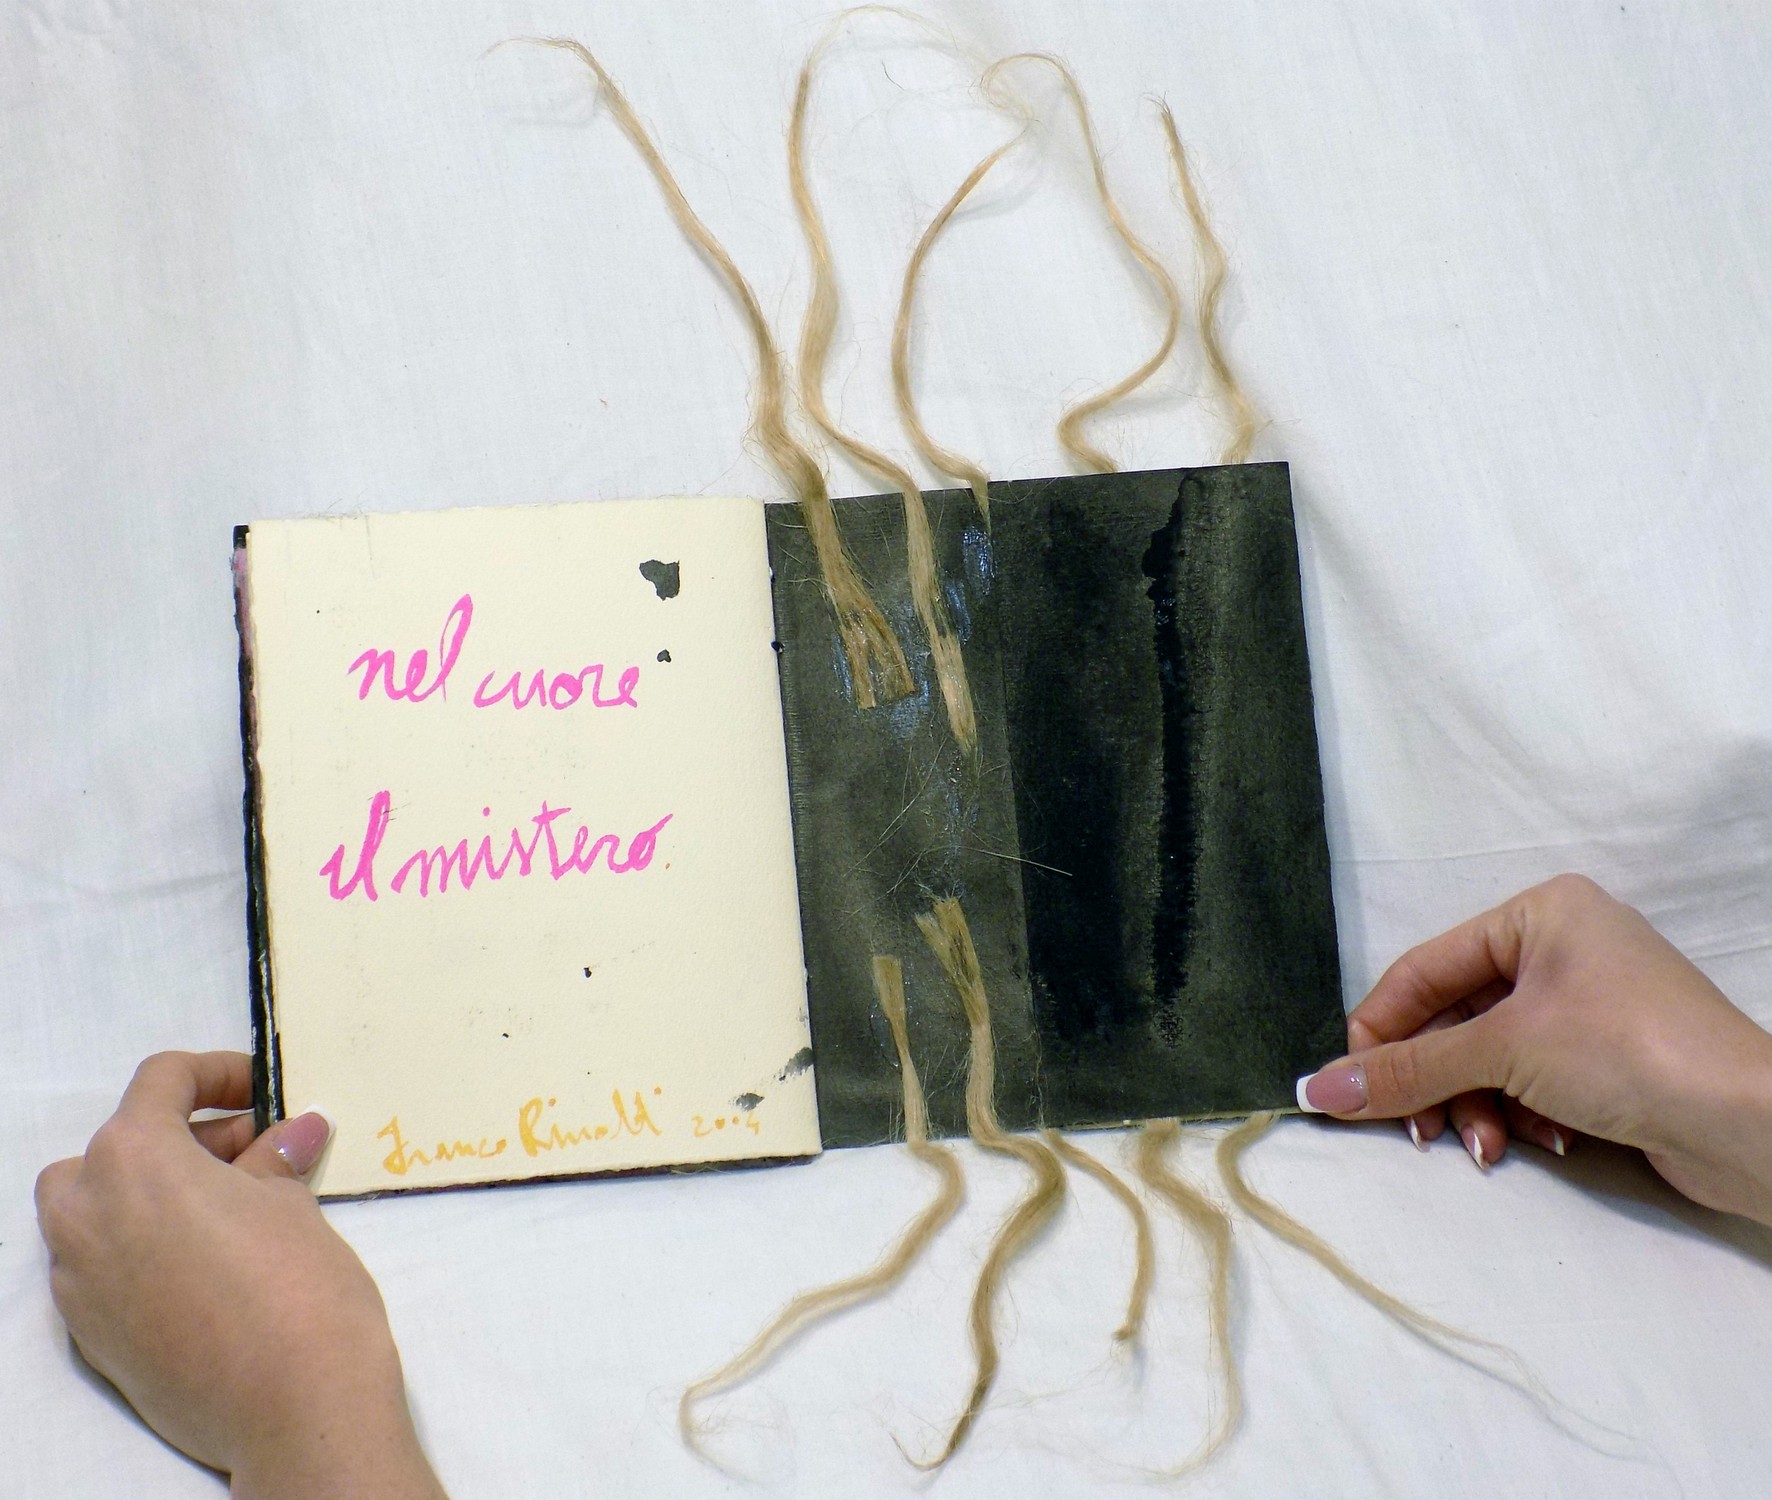 nel cuore
il mistero
Franco Rinaldi 2004